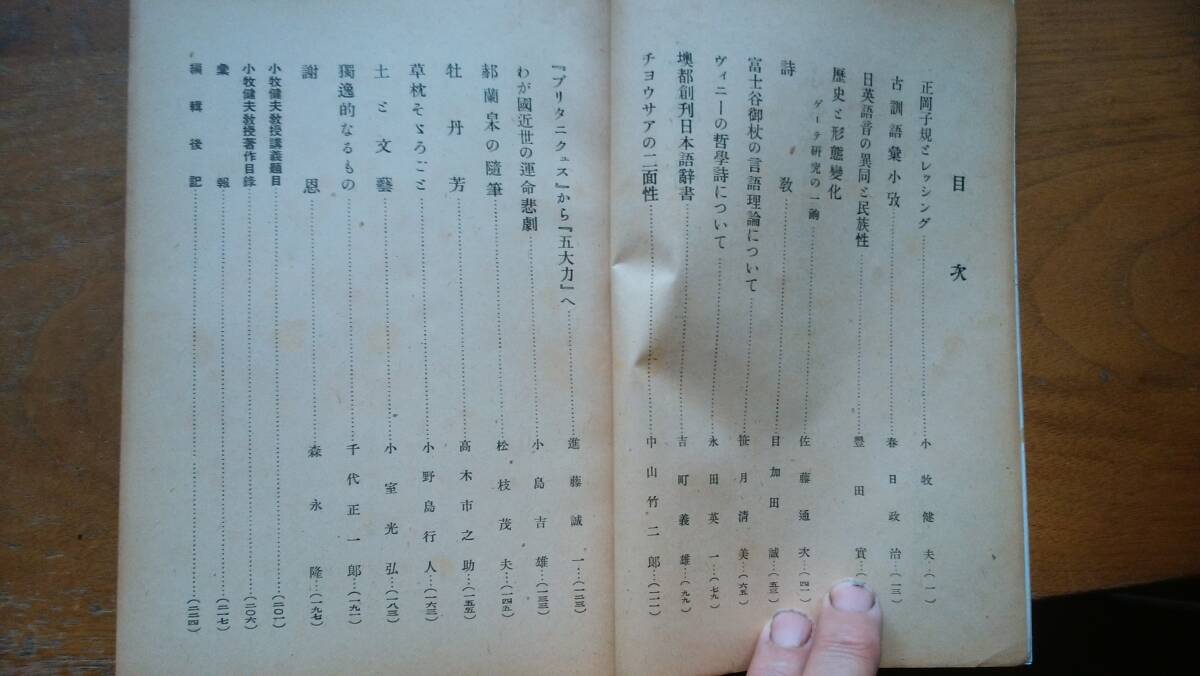 目次
正岡子規とレッシング……小牧健夫…(一)
古訓語彙小攷……春日政治…(一三)
日英語音の異同と民族性……豊田實
歷史と形態變化
ゲーテ研究の一齣……佐藤通次…(四一)
詩敎……目加田誠…(五三)
富士谷御杖の言語理論について……笹月清美…(六五)
ヴィニーの哲學詩について……永田英一…(七九)
墺都創刊日本語辭書……吉町義雄…(九九)
チョウサアの二面性……中山竹二郎…(一一一)
『ブリタニキュス』から『五大力』へ……進藤誠一…(一二三)
わが國近世の運命悲劇……小島吉雄…(一三三)
郝蘭皐の隨筆……松枝茂夫…(一四五)
牡丹芳……高木市之助…(一五五)
草枕そゞろごと……小野島行人…(一六三)
土と文藝……小室光弘…(一八三)
獨逸的なるもの……千代正一郎…(一九一)
謝恩……森永隆…(一九七)
小牧健夫敎授講義題目……(二〇一)
小牧健夫敎授著作目錄……(二〇六)
彙報……(二一七)
編輯後記……(二二四)